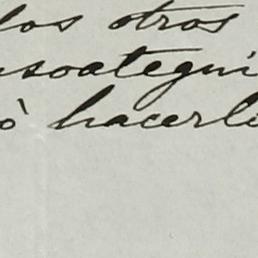 los otros
nsoategui
ò hacerl